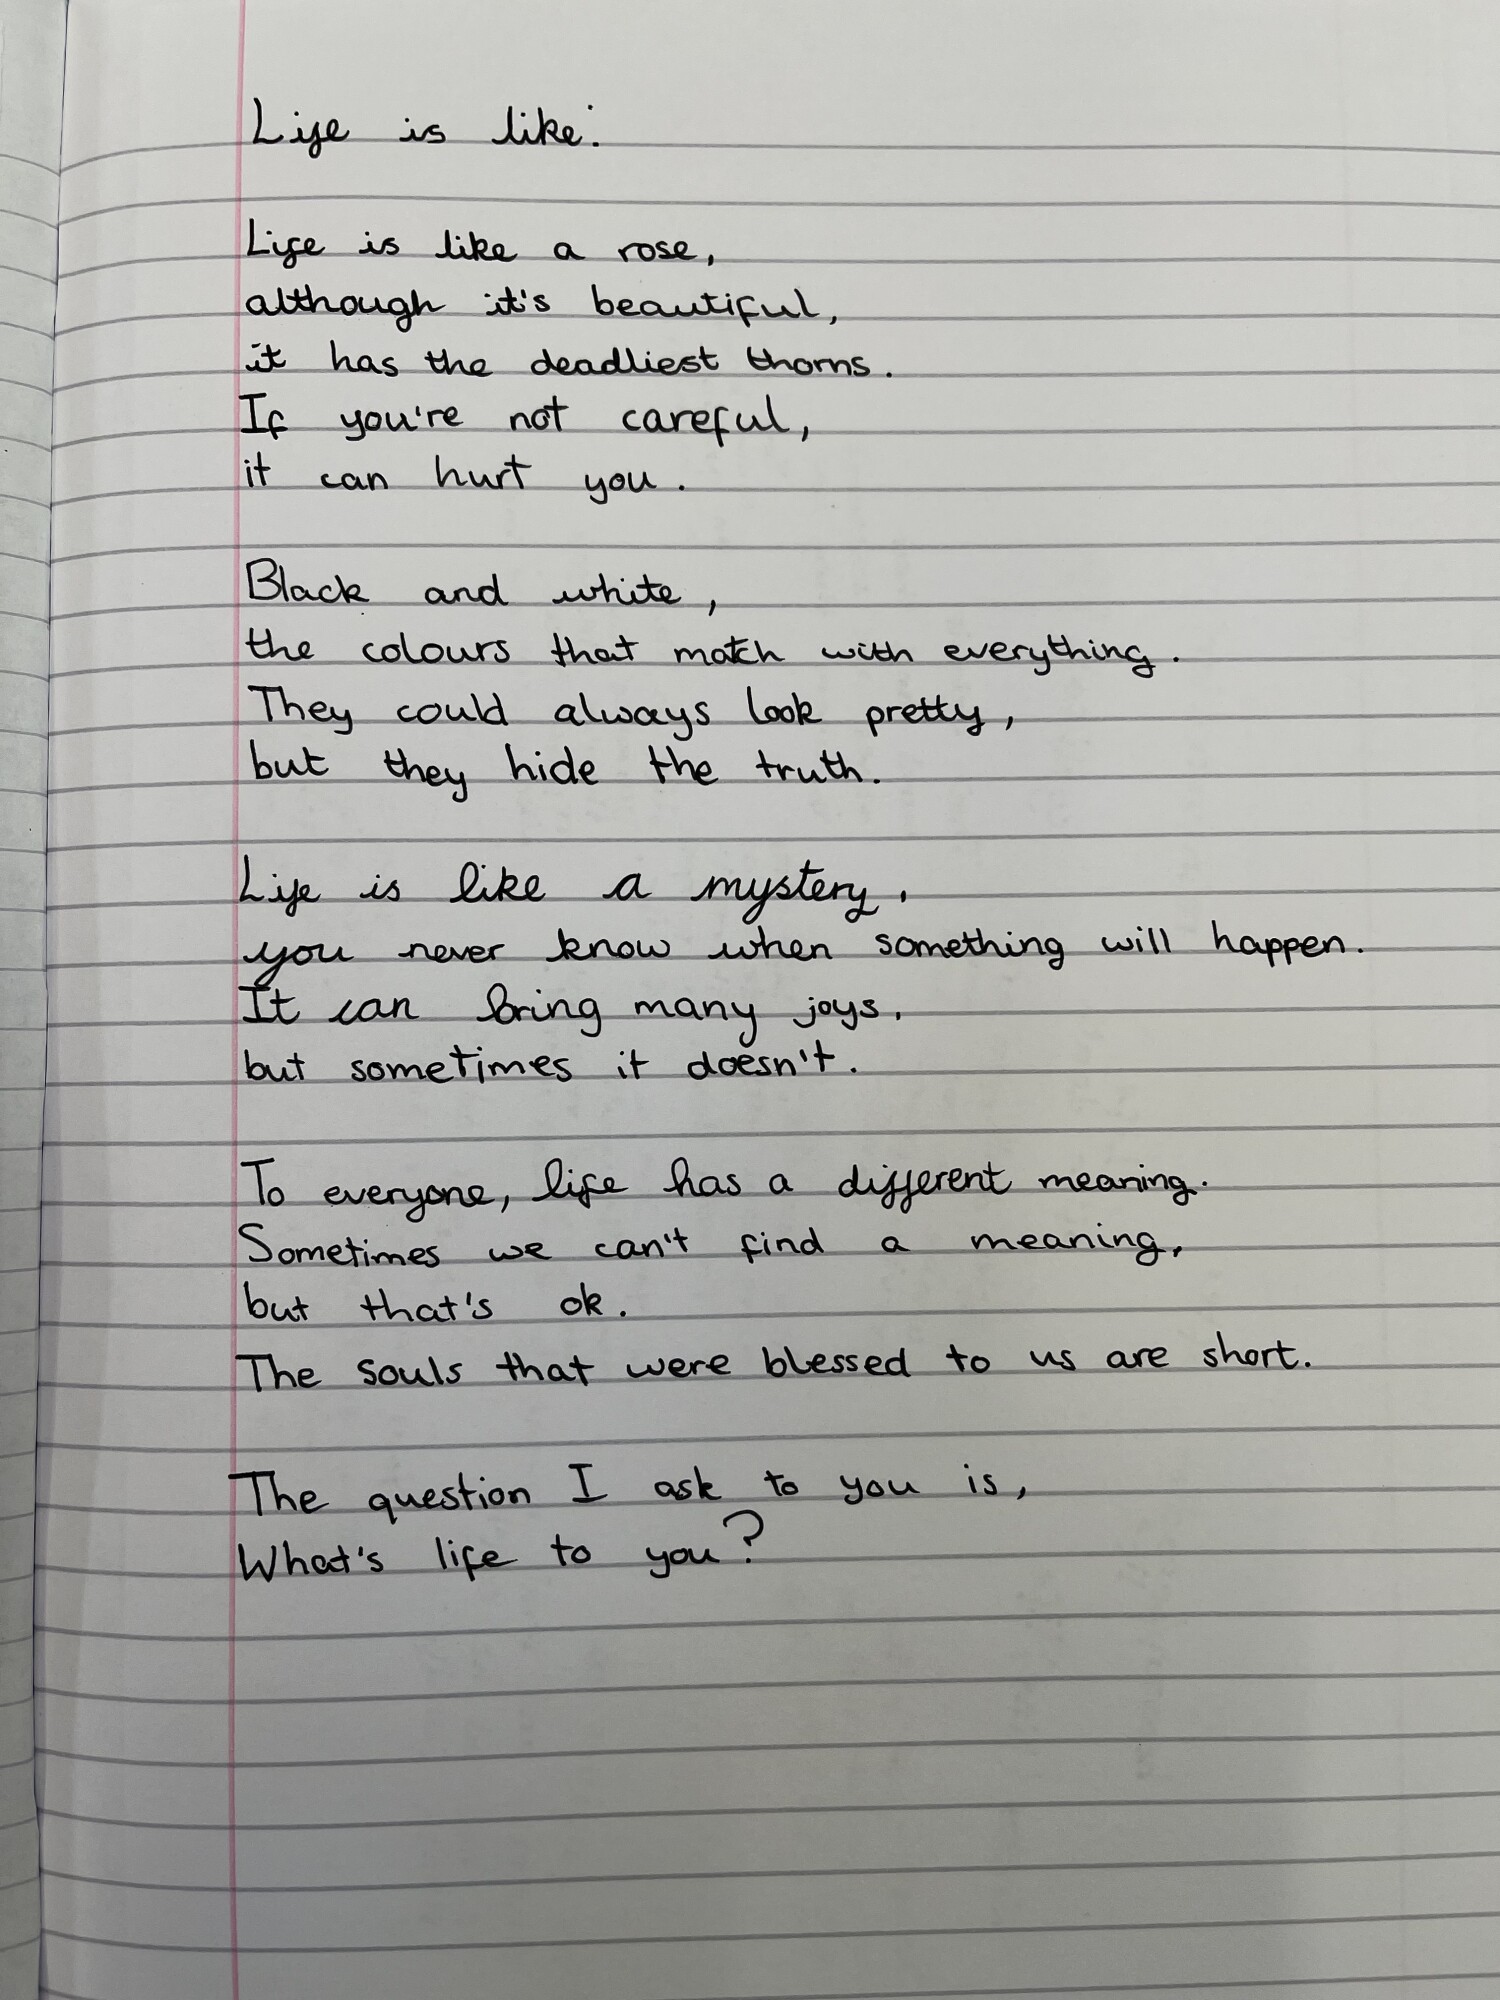 Life is like:
Life is like a rose,
although it's beautiful,
it has the deadliest thorns.
If you're not careful,
it can hurt you.
Black and white,
the colours that match with everything.
They could always look pretty,
but they hide the truth.
Life is like a mystery,
you never know when something will happen.
It can bring many joys,
but sometimes it doesn't.
To everyone, life has a different meaning.
Sometimes we can't find a meaning,
but that's ok.
The souls that were blessed to us are short.
The question I ask to you is,
What's life to you?